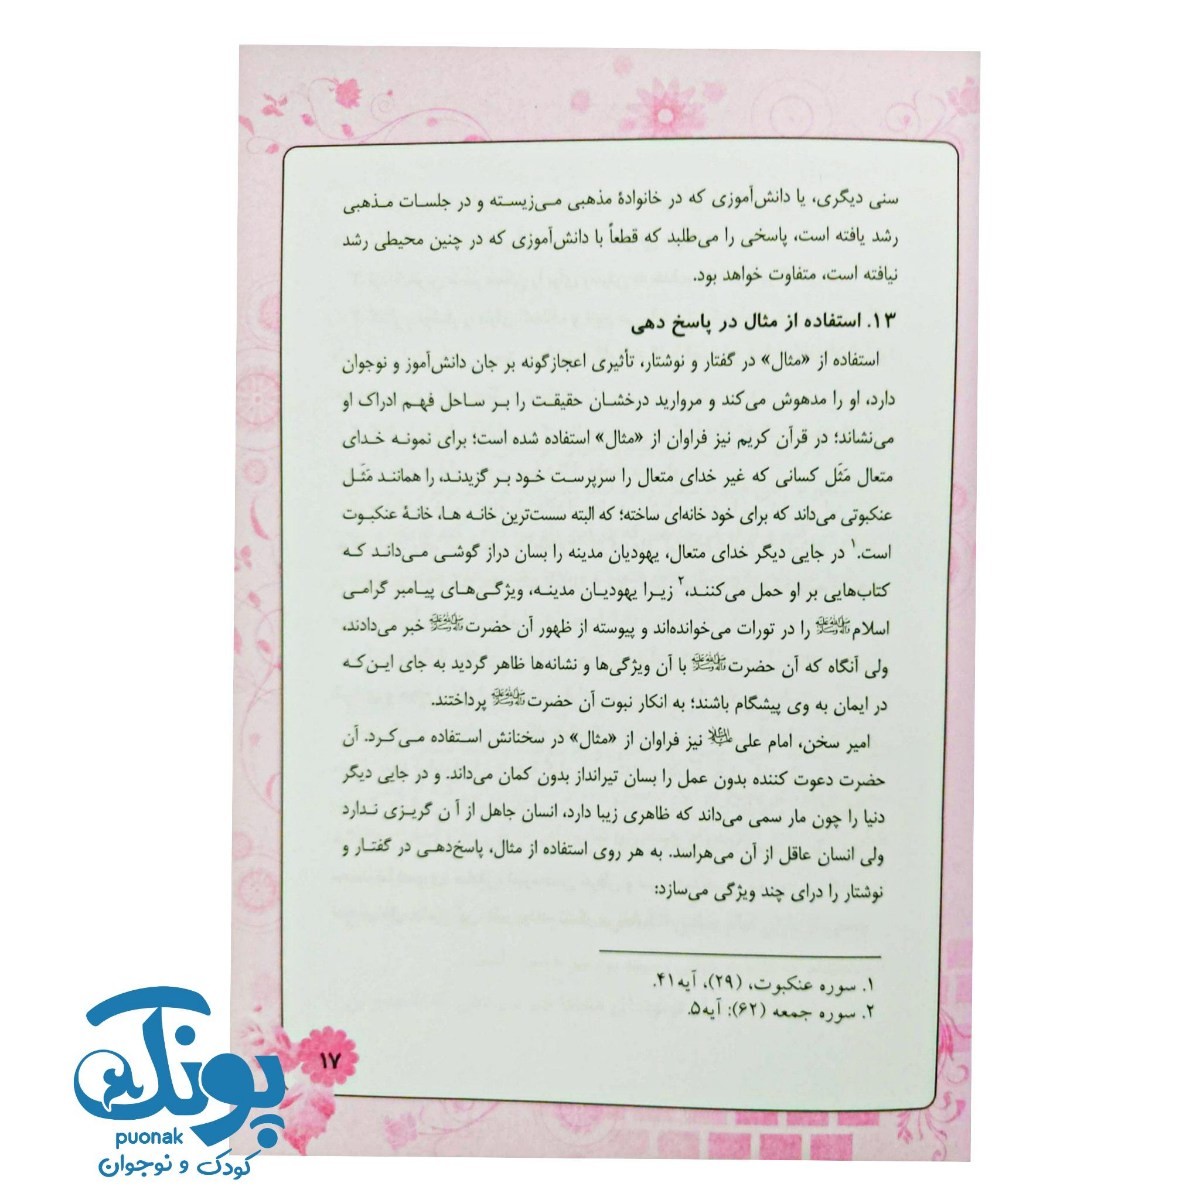 سنی دیگری، یا دانش‌آموزی که در خانوادهٔ مذهبی می‌زیسته و در جلسات مذهبی
رشد یافته است، پاسخی را می‌طلبد که قطعاً با دانش‌آموزی که در چنین محیطی رشد
نیافته است، متفاوت خواهد بود.
۱۳. استفاده از مثال در پاسخ دهی
استفاده از «مثال» در گفتار و نوشتار، تأثیری اعجازگونه بر جان دانش‌آموز و نوجوان
دارد، او را مدهوش می‌کند و مروارید درخشان حقیقت را بر ساحل فهم ادراک او
می‌نشاند؛ در قرآن کریم نیز فراوان از «مثال» استفاده شده است؛ برای نمونه خدای
متعال مَثَل کسانی که غیر خدای متعال را سرپرست خود بر گزیدند، را همانند مَثَل
عنکبوتی می‌داند که برای خود خانه‌ای ساخته؛ که البته سست‌ترین خانه ها، خانهٔ عنکبوت
است.۱ در جایی دیگر خدای متعال، یهودیان مدینه را بسان دراز گوشی می‌داند که
کتاب‌هایی بر او حمل می‌کنند،۲ زیرا یهودیان مدینه، ویژگی‌های پیامبر گرامی
اسلامﷺ را در تورات می‌خوانده‌اند و پیوسته از ظهور آن حضرتﷺ خبر می‌دادند،
ولی آنگاه که آن حضرتﷺ با آن ویژگی‌ها و نشانه‌ها ظاهر گردید به جای این‌که
در ایمان به وی پیشگام باشند؛ به انکار نبوت آن حضرتﷺ پرداختند.
امیر سخن، امام علی علیه‌السلام نیز فراوان از «مثال» در سخنانش استفاده می‌کرد. آن
حضرت دعوت کننده بدون عمل را بسان تیرانداز بدون کمان می‌داند. و در جایی دیگر
دنیا را چون مار سمی می‌داند که ظاهری زیبا دارد، انسان جاهل از آ ن گریزی ندارد
ولی انسان عاقل از آن می‌هراسد. به هر روی استفاده از مثال، پاسخ‌دهی در گفتار و
نوشتار را درای چند ویژگی می‌سازد:
۱. سوره عنکبوت، (۲۹)، آیه۴۱.
۲. سوره جمعه (۶۲): آیه۵.
۱۷
پونک
puonak
کودک و نوجوان